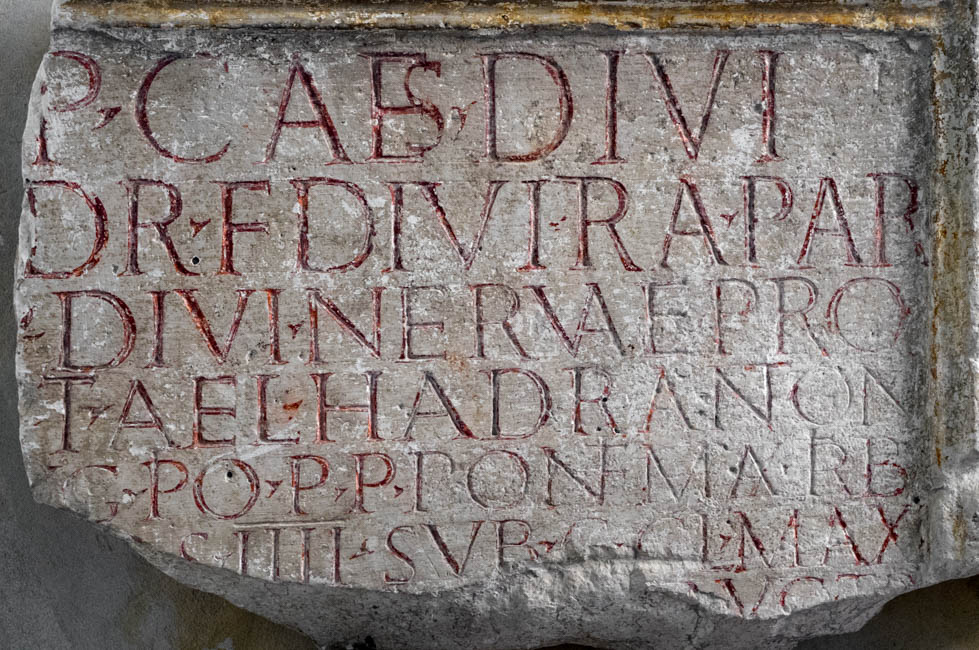 P·CAES·DIVI
DR·F·DIVI·TRA·PAR
DIVI·NERVAE·PRO
T·AEL·HADRANTON
G·P·O·P·P·PONT·MAR
S·IIII·SVB·C·CL·MAX